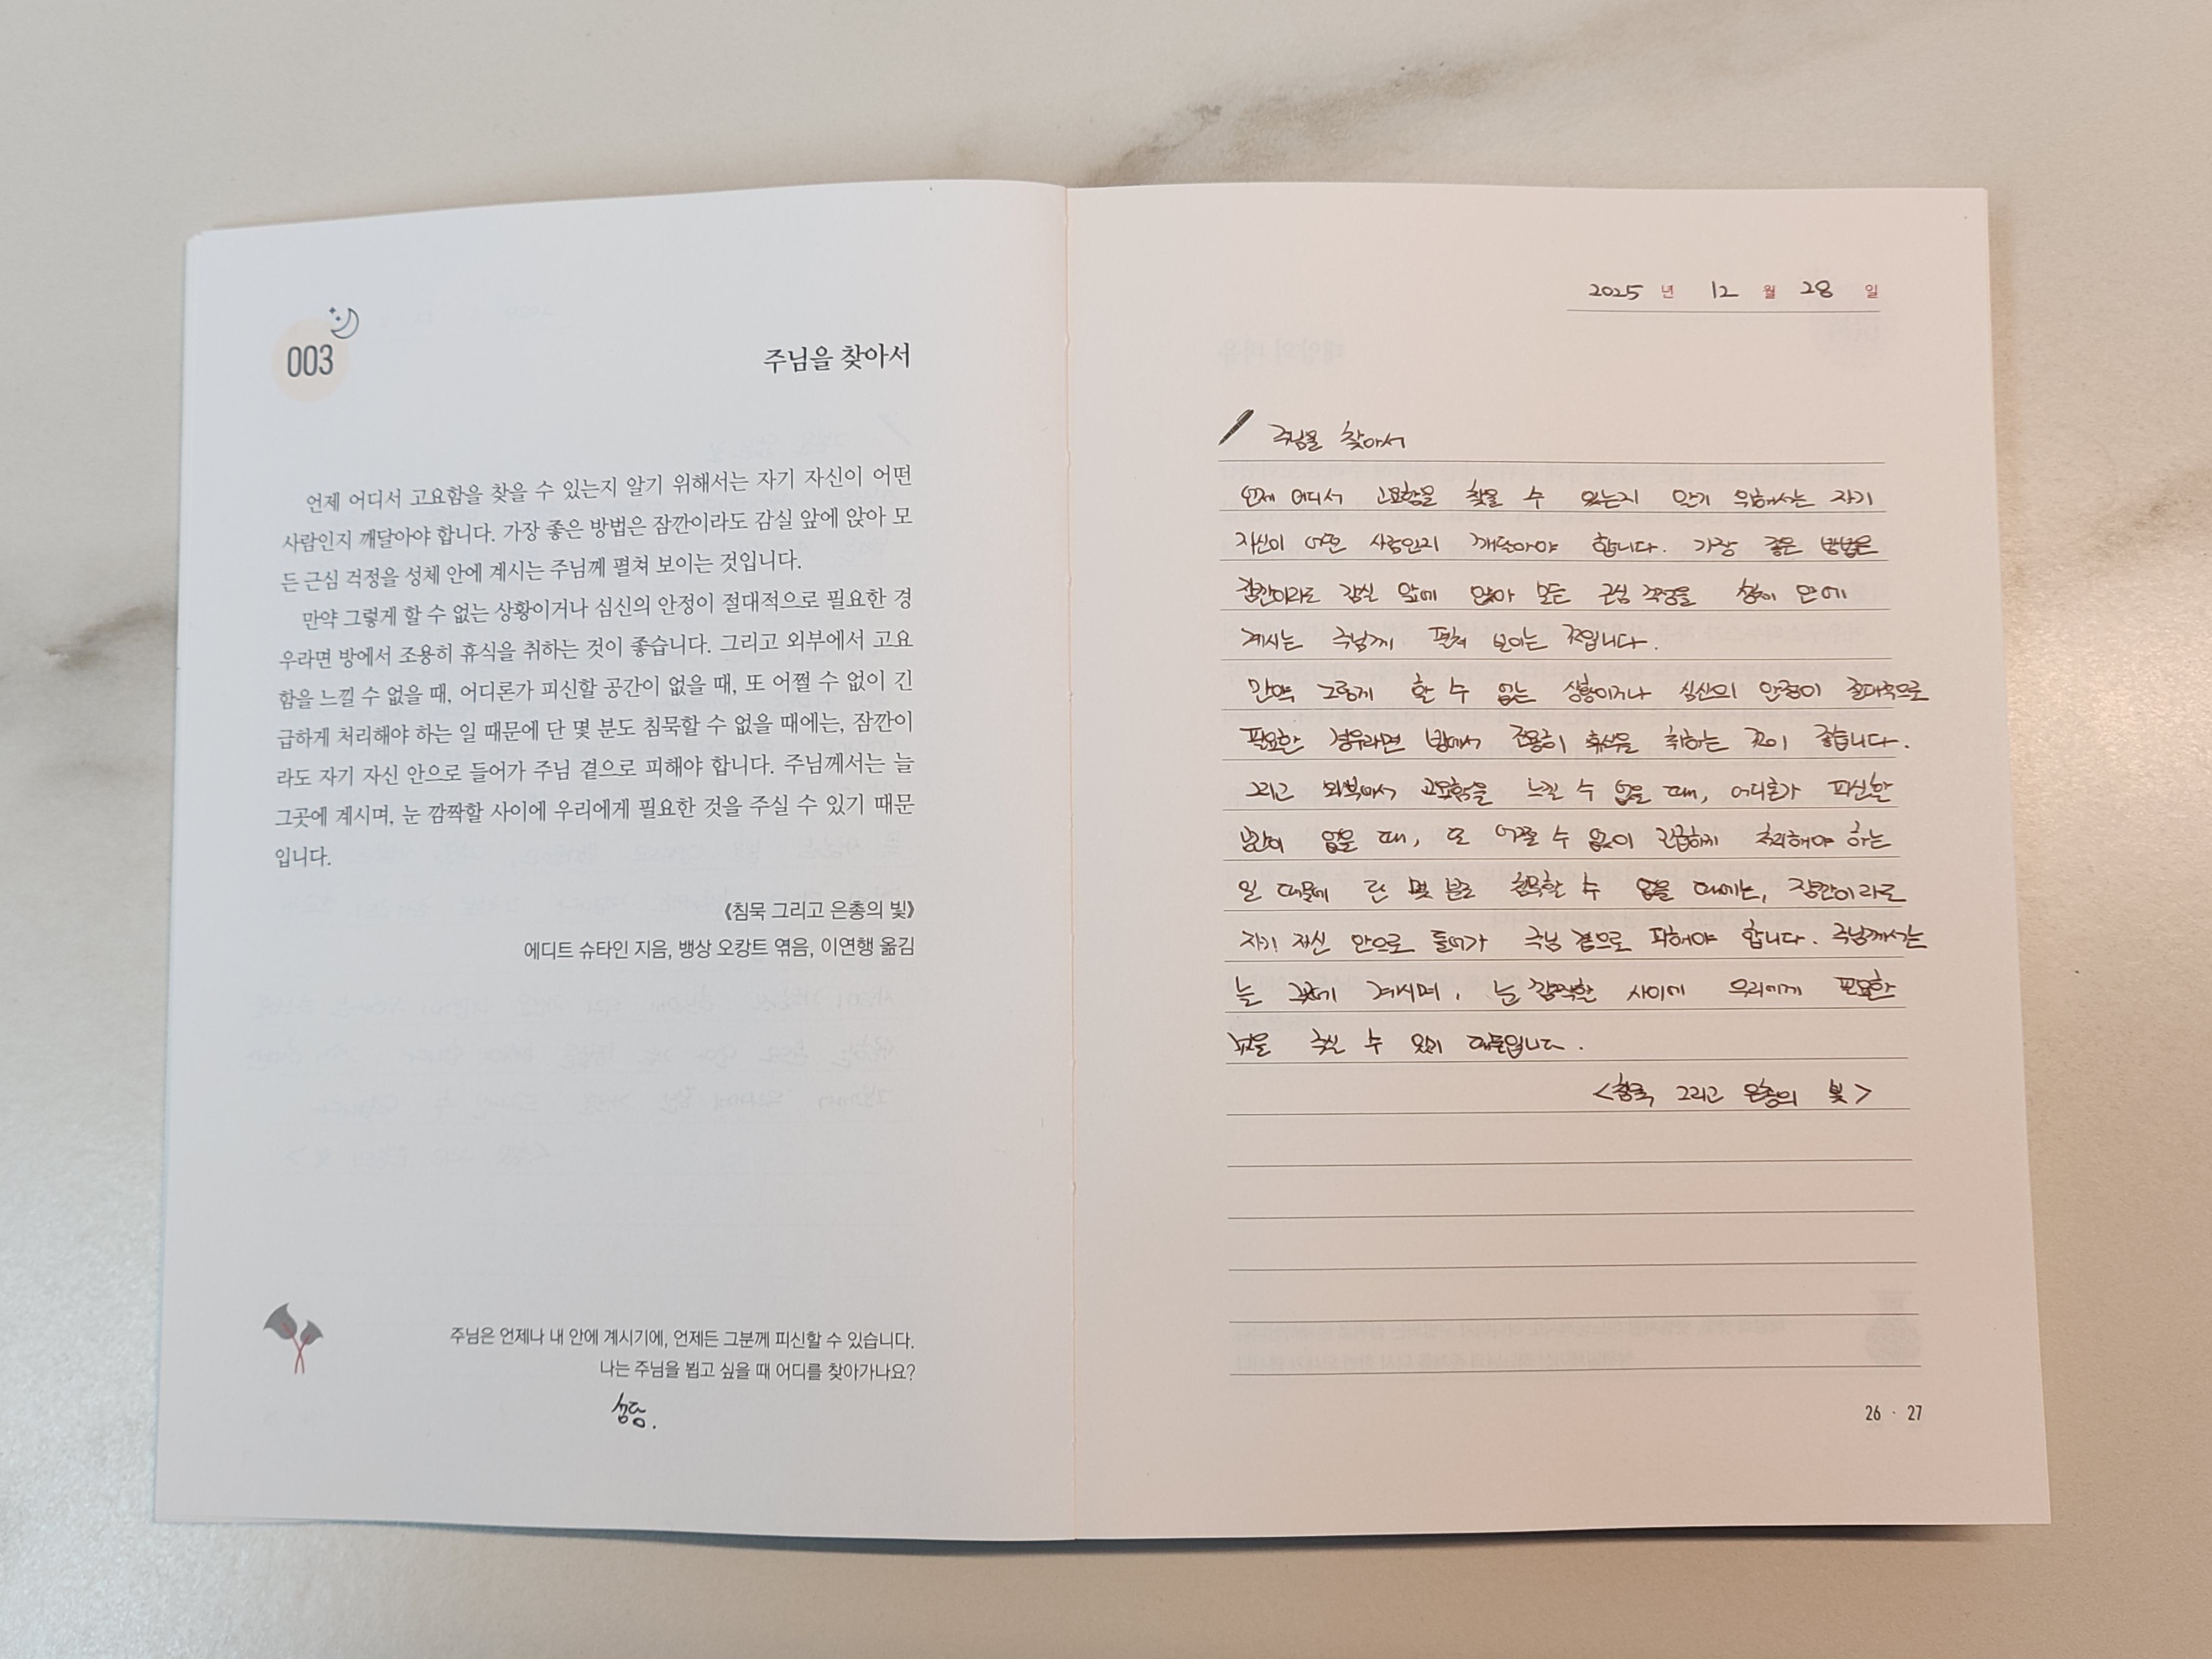 003
주님을 찾아서
언제 어디서 고요함을 찾을 수 있는지 알기 위해서는 자기 자신이 어떤
사람인지 깨달아야 합니다. 가장 좋은 방법은 잠깐이라도 감실 앞에 앉아 모
든 근심 걱정을 성체 안에 계시는 주님께 펼쳐 보이는 것입니다.
만약 그렇게 할 수 없는 상황이거나 심신의 안정이 절대적으로 필요한 경
우라면 방에서 조용히 휴식을 취하는 것이 좋습니다. 그리고 외부에서 고요
함을 느낄 수 없을 때, 어디론가 피신할 공간이 없을 때, 또 어쩔 수 없이 긴
급하게 처리해야 하는 일 때문에 단 몇 분도 침묵할 수 없을 때에는, 잠깐이
라도 자기 자신 안으로 들어가 주님 곁으로 피해야 합니다. 주님께서는 늘
그곳에 계시며, 눈 깜짝할 사이에 우리에게 필요한 것을 주실 수 있기 때문
입니다.
《침묵 그리고 은총의 빛》
에디트 슈타인 지음, 뱅상 오캉트 엮음, 이연행 옮김
주님은 언제나 내 안에 계시기에, 언제든 그분께 피신할 수 있습니다.
나는 주님을 뵙고 싶을 때 어디를 찾아가나요?
성당.
2025 년 12 월 28 일
주님을 찾아서
언제 어디서 고요함을 찾을 수 있는지 알기 위해서는 자기
자신이 어떤 사람인지 깨달아야 합니다. 가장 좋은 방법은
잠깐이라도 감실 앞에 앉아 모든 근심 걱정을 성체 안에
계시는 주님께 펼쳐 보이는 것입니다.
만약 그렇게 할 수 없는 상황이거나 심신의 안정이 절대적으로
필요한 경우라면 방에서 조용히 휴식을 취하는 것이 좋습니다.
그리고 외부에서 고요함을 느낄 수 없을 때, 어디론가 피신할
없을 때, 또 어쩔 수 없이 긴급하게 처리해야 하는
일 때문에 단 몇 분도 침묵할 수 없을 때에는, 잠깐이라도
자기 자신 안으로 들어가 주님 곁으로 피해야 합니다. 주님께서는
늘 그곳에 계시며, 눈 깜짝할 사이에 우리에게 필요한
것을 주실 수 있기 때문입니다.
<침묵 그리고 은총의 빛>
26 · 27